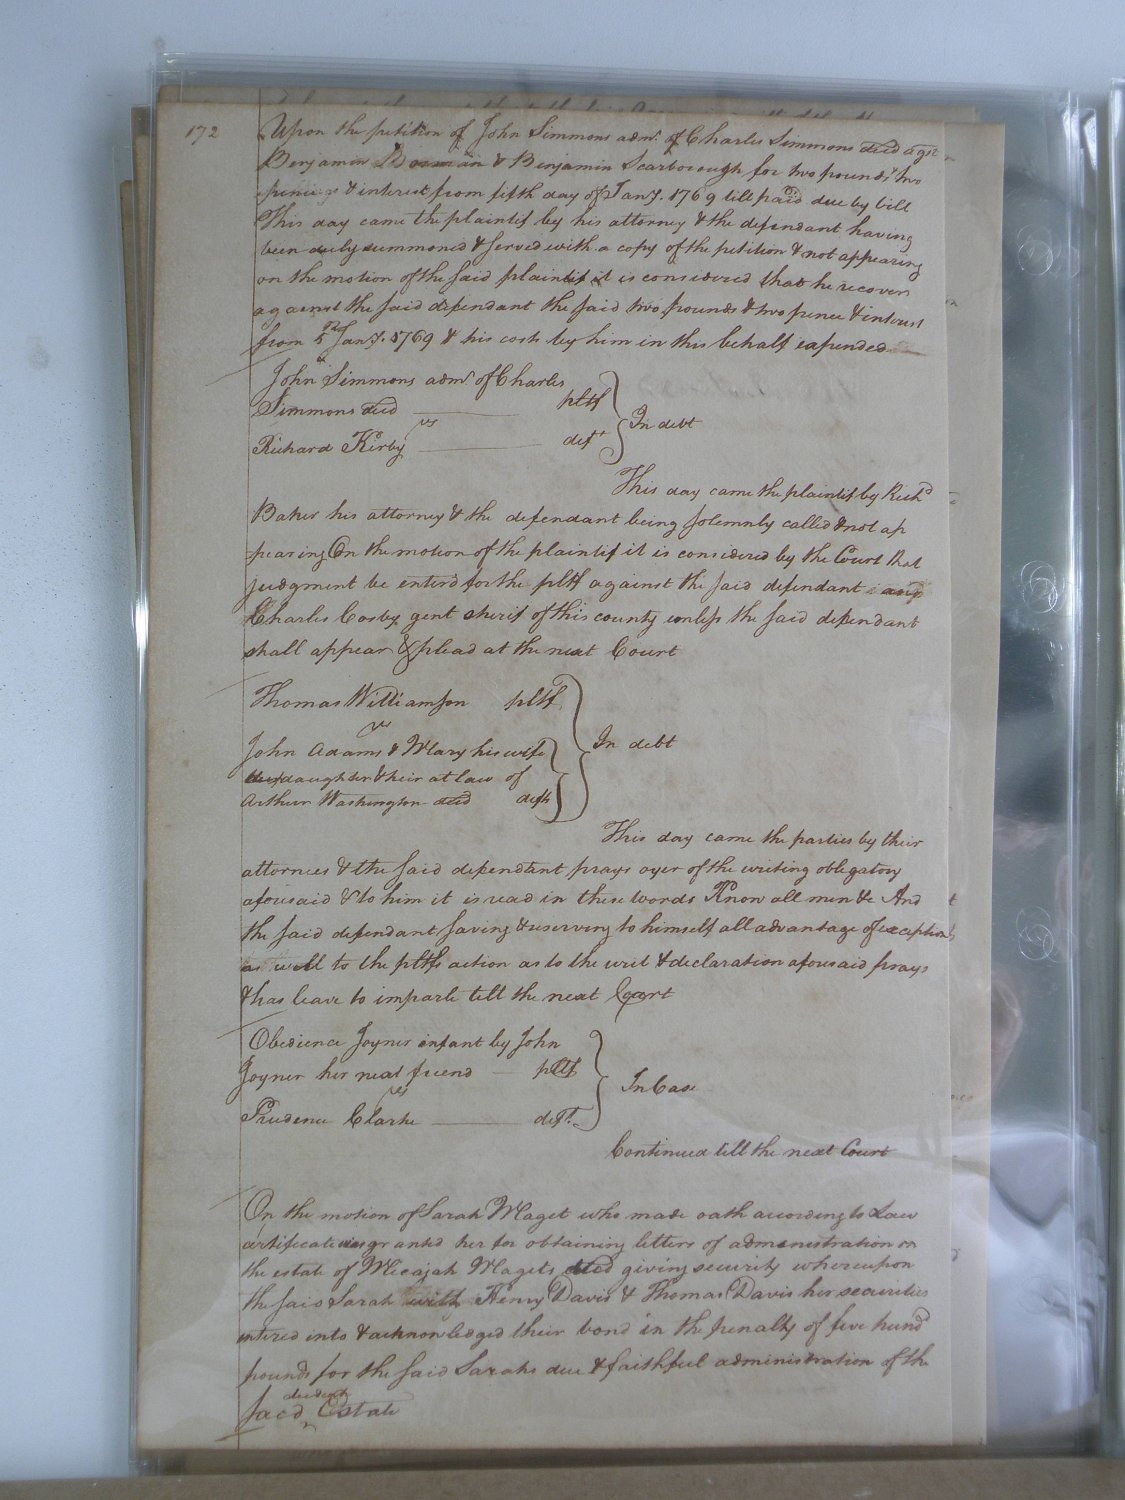 172
Upon the petition of John Simmons admr. of Charles Simmons decd agst
Benjamin & Benjamin Scarborough for two pounds two
pence & interest from fifth day of Jany. 1769 till paid due by bill
This day came the plaintif by his attorney & the defendant having
been duly summoned & served with a copy of the petition & not appearing
on the motion of the said plaintif it is considered that he recover
against the said defendant the said two pounds & two pence & interest
from 5th Jany. 1769 & his costs by him in this behalf expended
John Simmons admr. of Charles
Simmons decd pltf
vs In debt
Richard Kirby deft
This day came the plaintif by Richd
Baker his attorney & the defendant being solemnly called & not ap
pearing On the motion of the plaintif it is considered by the Court that
judgment be enterd for the pltf against the said defendant and
Charles Cosby gent sherif of this county unless the said defendant
shall appear & plead at the next Court
Thomas Williamson pltf
vs
John Adams & Mary his wife In debt
daughter & heir at law of
Arthur Washington decd defts
This day came the parties by their
attornies & the said defendant prays oyer of the writing obligatory
aforesaid & to him it is read in these words Know all men &c And
the said defendant saving & reserving to himself all advantage of exceptions
as well to the pltfs action as to the writ & declaration aforesaid prays
& has leave to imparle till the next Court
Obedience Joyner infant by John
Joyner her next friend pltf
vs In Case
Prudence Clarke deft.
Continued till the next Court
On the motion of Sarah Maget who made oath according to Law
certificate was granted her for obtaining letters of administration on
the estate of Micajah Magets decd giving security whereupon
the said Sarah with Henry Davis & Thomas Davis her securities
entered into & acknowledged their bond in the penalty of five hund
pounds for the said Sarahs due & faithful administration of the
decedents
said Estate